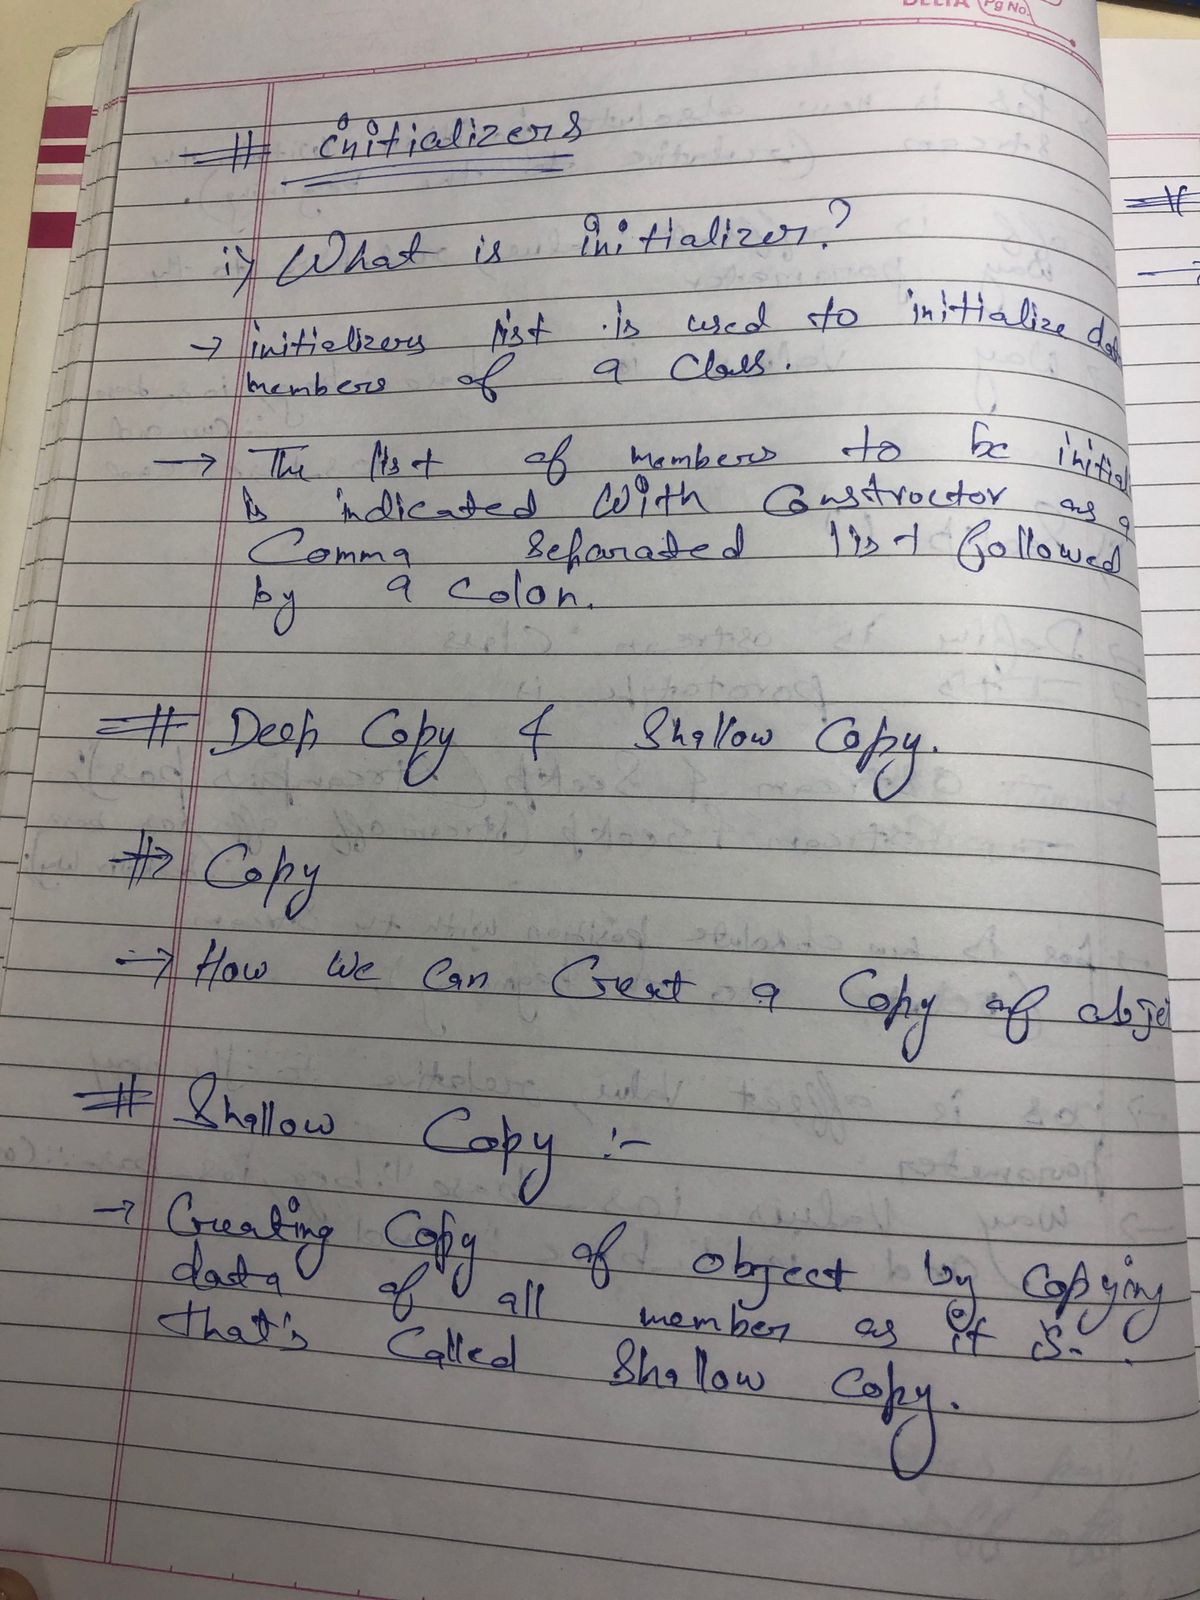 DELTA Pg No.
# initializers
i) What is initializer?
→ initializers list is used to initialize data
members of a Class.
→ The list of members to be initial
is indicated with Constructor as a
Comma separated list followed
by a Colon.
# Deep Copy & Shallow Copy.
#→ Copy
→ How we can Creat a Copy of obje
# Shallow Copy :-
→ Creating Copy of object by Copying
data of all member as it is.
that's Called Shallow Copy.